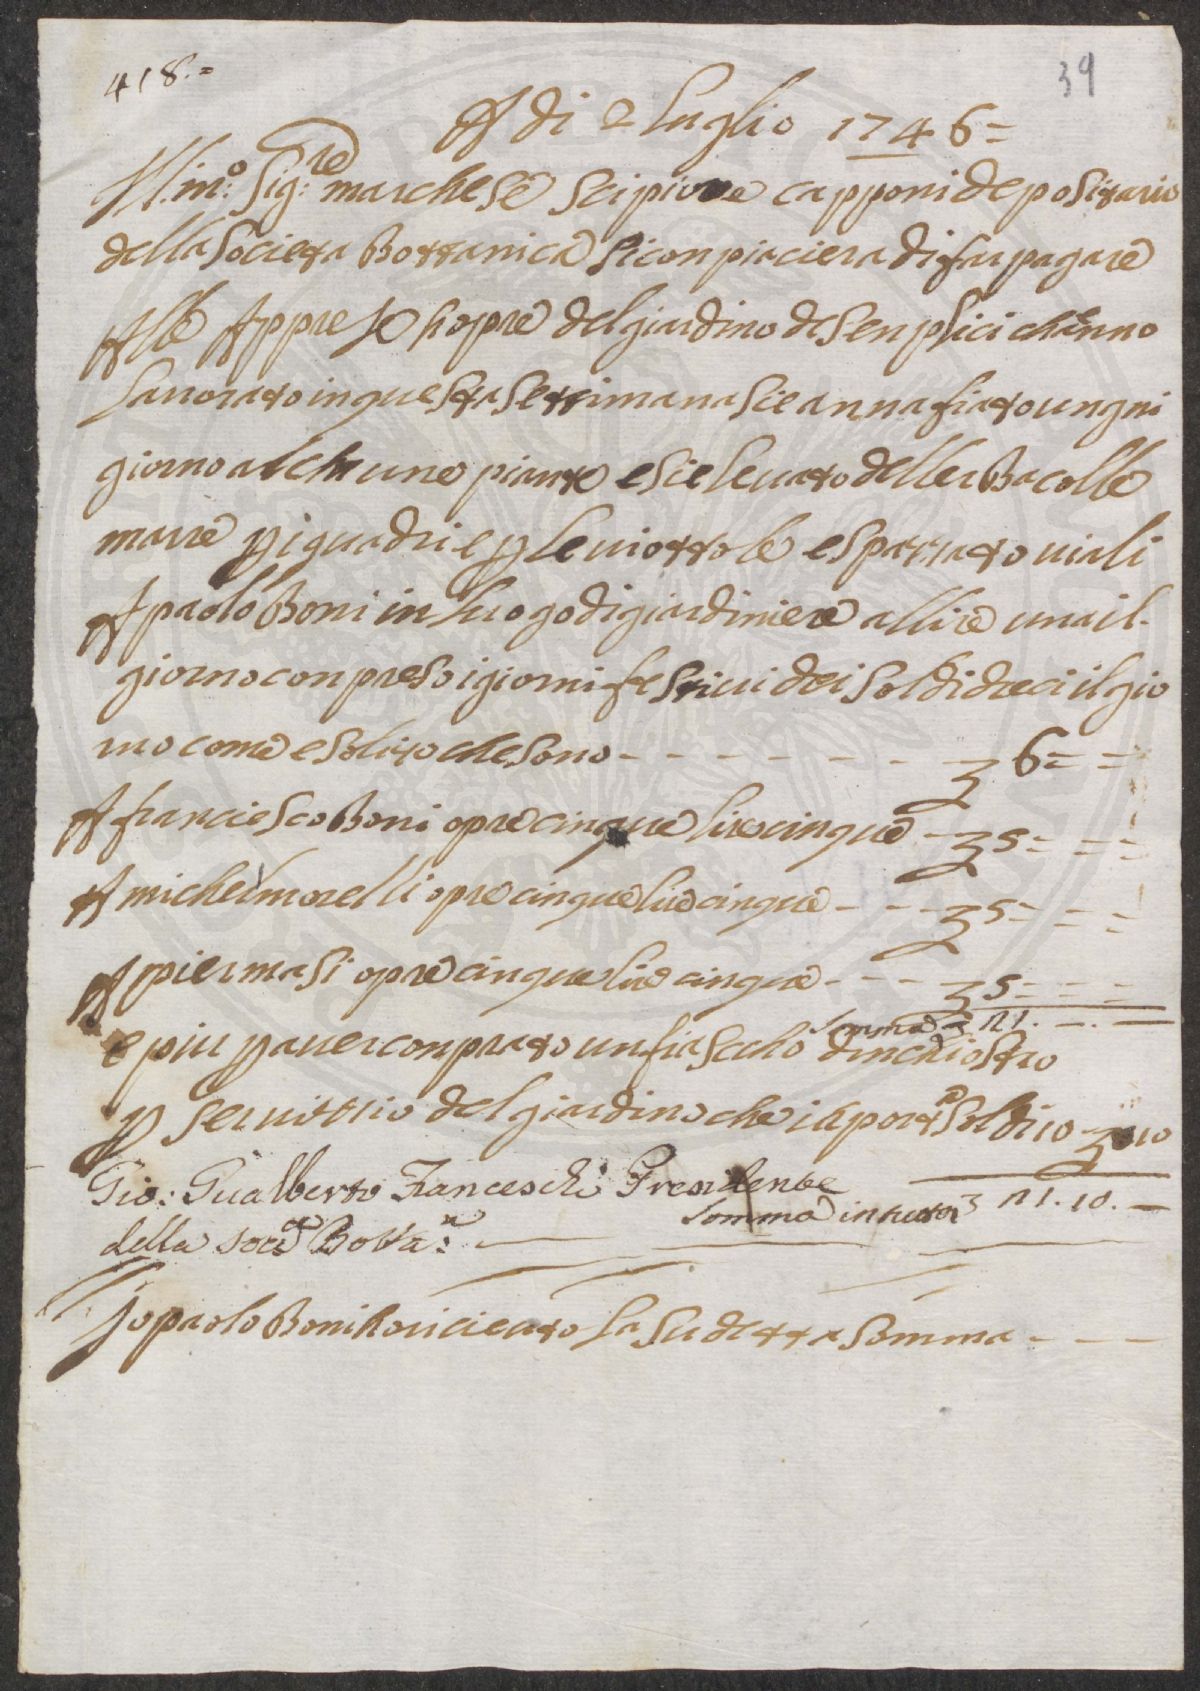 418.=
39
A di 2 Luglio 1746=
Ill.mo: Sig:re marchese Scipione capponi depositario
della Societa Bottanica Si conpiaciera di far pagare
Alle Appresso hopre del giardino de senplici channo
Lauorato in questa Settimana Sie annafiato ungni
giorno alchune piante e Sie leuato delle Bacolle
marre p i quadri e p le uiottole e spazzato uiali
A paolo Boni in luogo di giardiniere a llire una il
giorno conpreso i giorni festiui dei Soldi dieci il gio
rno come e solito che sono - - - - - - - 6 = =
A franciesco Boni opre cinque lire cinque - 5 = = =
A michel morelli opre cinque lire cinque - - - 5 = = =
A pier masi opre cinque lire cinque - - - 5 = = =
Somma 21. -. -
e piu p auer conprato un fiascho dinchiostro
p Seruittio del giardino che inporta Soldi 10 - 10
Gio: Gualberto Franceschi Presidente
Somma in tutto 21. 10. -
della Soc.a Botta.a:
Jo paolo Boni ho riceuto la Sudetta Somma - - -